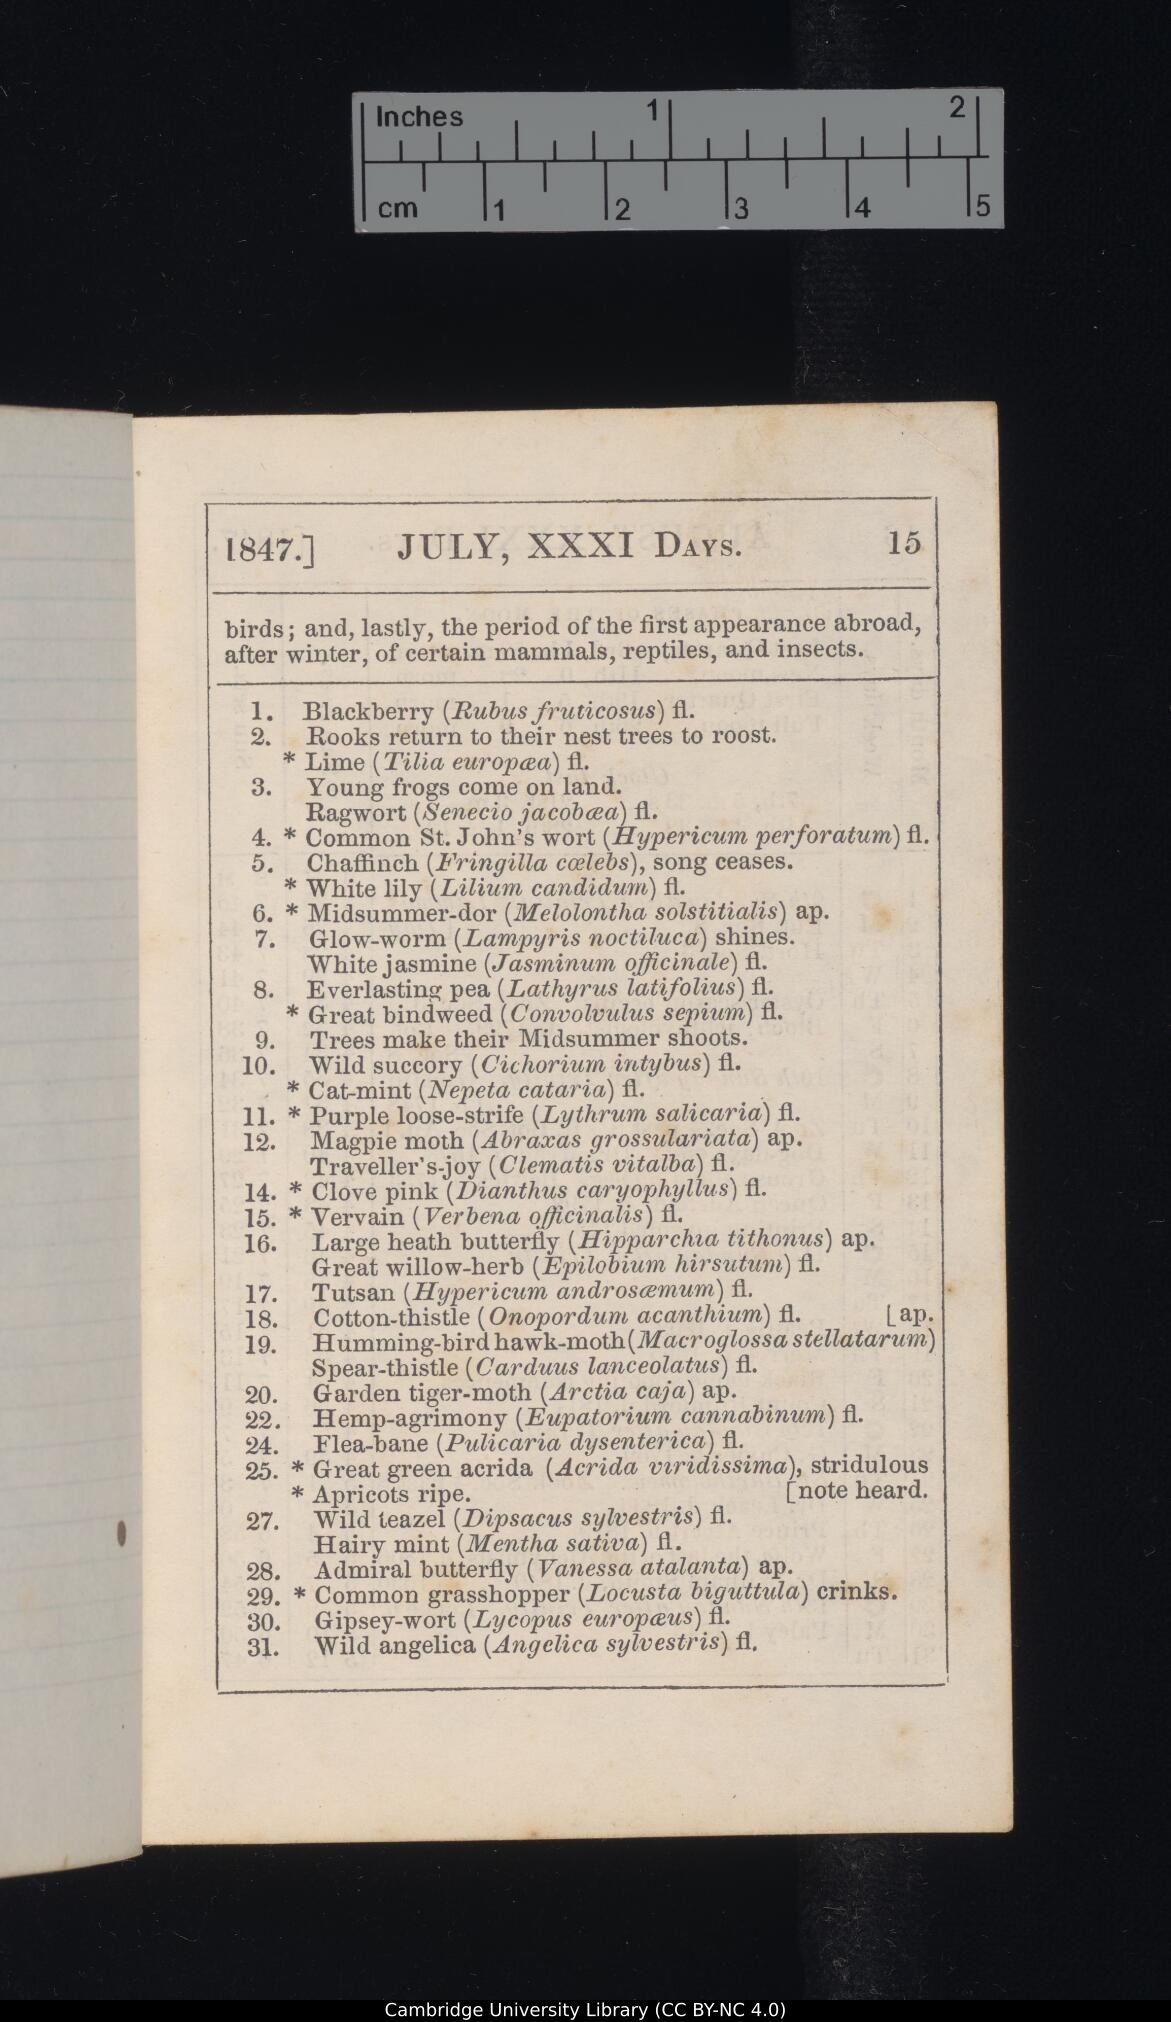 Inches 1 2
cm 1 2 3 4 5
1847.] JULY, XXXI Days. 15
birds; and, lastly, the period of the first appearance abroad,
after winter, of certain mammals, reptiles, and insects.
1. Blackberry (Rubus fruticosus) fl.
2. Rooks return to their nest trees to roost.
* Lime (Tilia europæa) fl.
3. Young frogs come on land.
Ragwort (Senecio jacobœa) fl.
4. * Common St. John's wort (Hypericum perforatum) fl.
5. Chaffinch (Fringilla cœlebs), song ceases.
* White lily (Lilium candidum) fl.
6. * Midsummer-dor (Melolontha solstitialis) ap.
7. Glow-worm (Lampyris noctiluca) shines.
White jasmine (Jasminum officinale) fl.
8. Everlasting pea (Lathyrus latifolius) fl.
* Great bindweed (Convolvulus sepium) fl.
9. Trees make their Midsummer shoots.
10. Wild succory (Cichorium intybus) fl.
* Cat-mint (Nepeta cataria) fl.
11. * Purple loose-strife (Lythrum salicaria) fl.
12. Magpie moth (Abraxas grossulariata) ap.
Traveller's-joy (Clematis vitalba) fl.
14. * Clove pink (Dianthus caryophyllus) fl.
15. * Vervain (Verbena officinalis) fl.
16. Large heath butterfly (Hipparchia tithonus) ap.
Great willow-herb (Epilobium hirsutum) fl.
17. Tutsan (Hypericum androsæmum) fl.
18. Cotton-thistle (Onopordum acanthium) fl. [ap.
19. Humming-bird hawk-moth (Macroglossa stellatarum)
Spear-thistle (Carduus lanceolatus) fl.
20. Garden tiger-moth (Arctia caja) ap.
22. Hemp-agrimony (Eupatorium cannabinum) fl.
24. Flea-bane (Pulicaria dysenterica) fl.
25. * Great green acrida (Acrida viridissima), stridulous
* Apricots ripe. [note heard.
27. Wild teazel (Dipsacus sylvestris) fl.
Hairy mint (Mentha sativa) fl.
28. Admiral butterfly (Vanessa atalanta) ap.
29. * Common grasshopper (Locusta biguttula) crinks.
30. Gipsey-wort (Lycopus europæus) fl.
31. Wild angelica (Angelica sylvestris) fl.
Cambridge University Library (CC BY-NC 4.0)